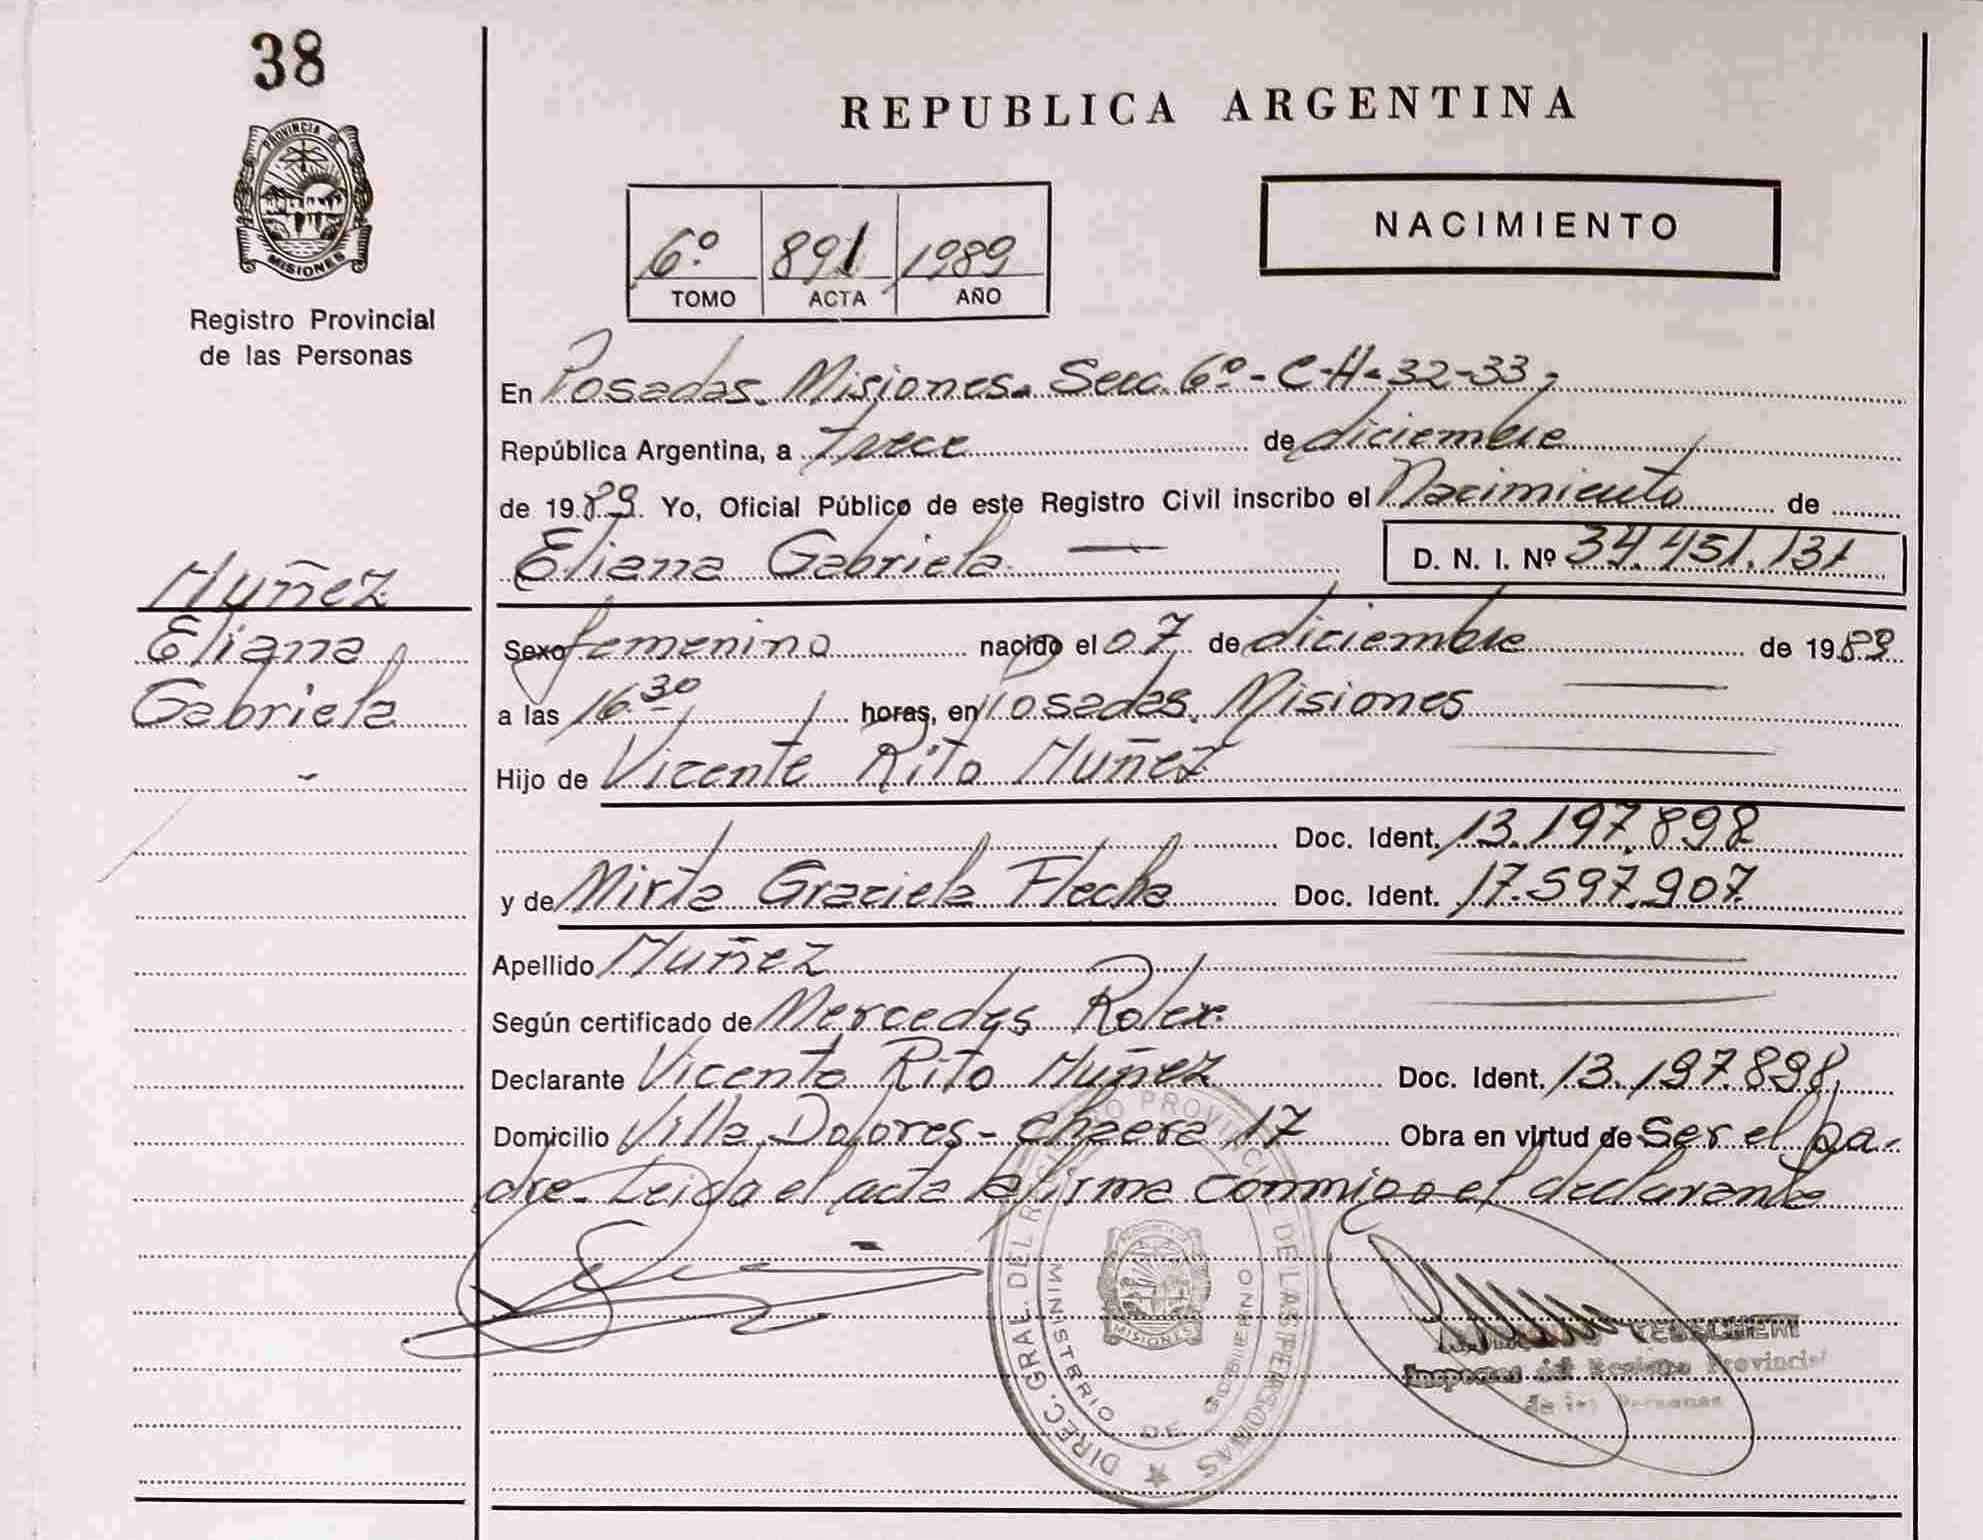 38
PROVINCIA DE
MISIONES
Registro Provincial
de las Personas
REPUBLICA ARGENTINA
6º 891 1989
TOMO ACTA AÑO
NACIMIENTO
En Posadas. Misiones. Secc. 6º - C-H-32-33-
República Argentina, a Trece de diciembre
de 1989. Yo, Oficial Público de este Registro Civil inscribo el Nacimiento de
Eliana Gabriela — D. N. I. Nº 34.451.131
Muñez
Eliana
Gabriela
Sexo femenino nacido el 07 de diciembre de 1989
a las 16.30 horas, en Posadas. Misiones
Hijo de Vicente Rito Muñez
Doc. Ident. 13.197.898
y de Mirta Graciela Flecha Doc. Ident. 17.597.907
Apellido Muñez
Según certificado de Mercedes Roler
Declarante Vicente Rito Muñez Doc. Ident. 13.197.898
Domicilio Villa Dolores - Chacra 17 Obra en virtud de ser el pa-
dre. Leida el acta la firma conmigo el declarante
DIREC. GRAL. DEL REGISTRO PROVINCIAL DE LAS PERSONAS
MINISTERIO DE GOBIERNO
MISIONES
Inspector del Registro Provincial
de las Personas